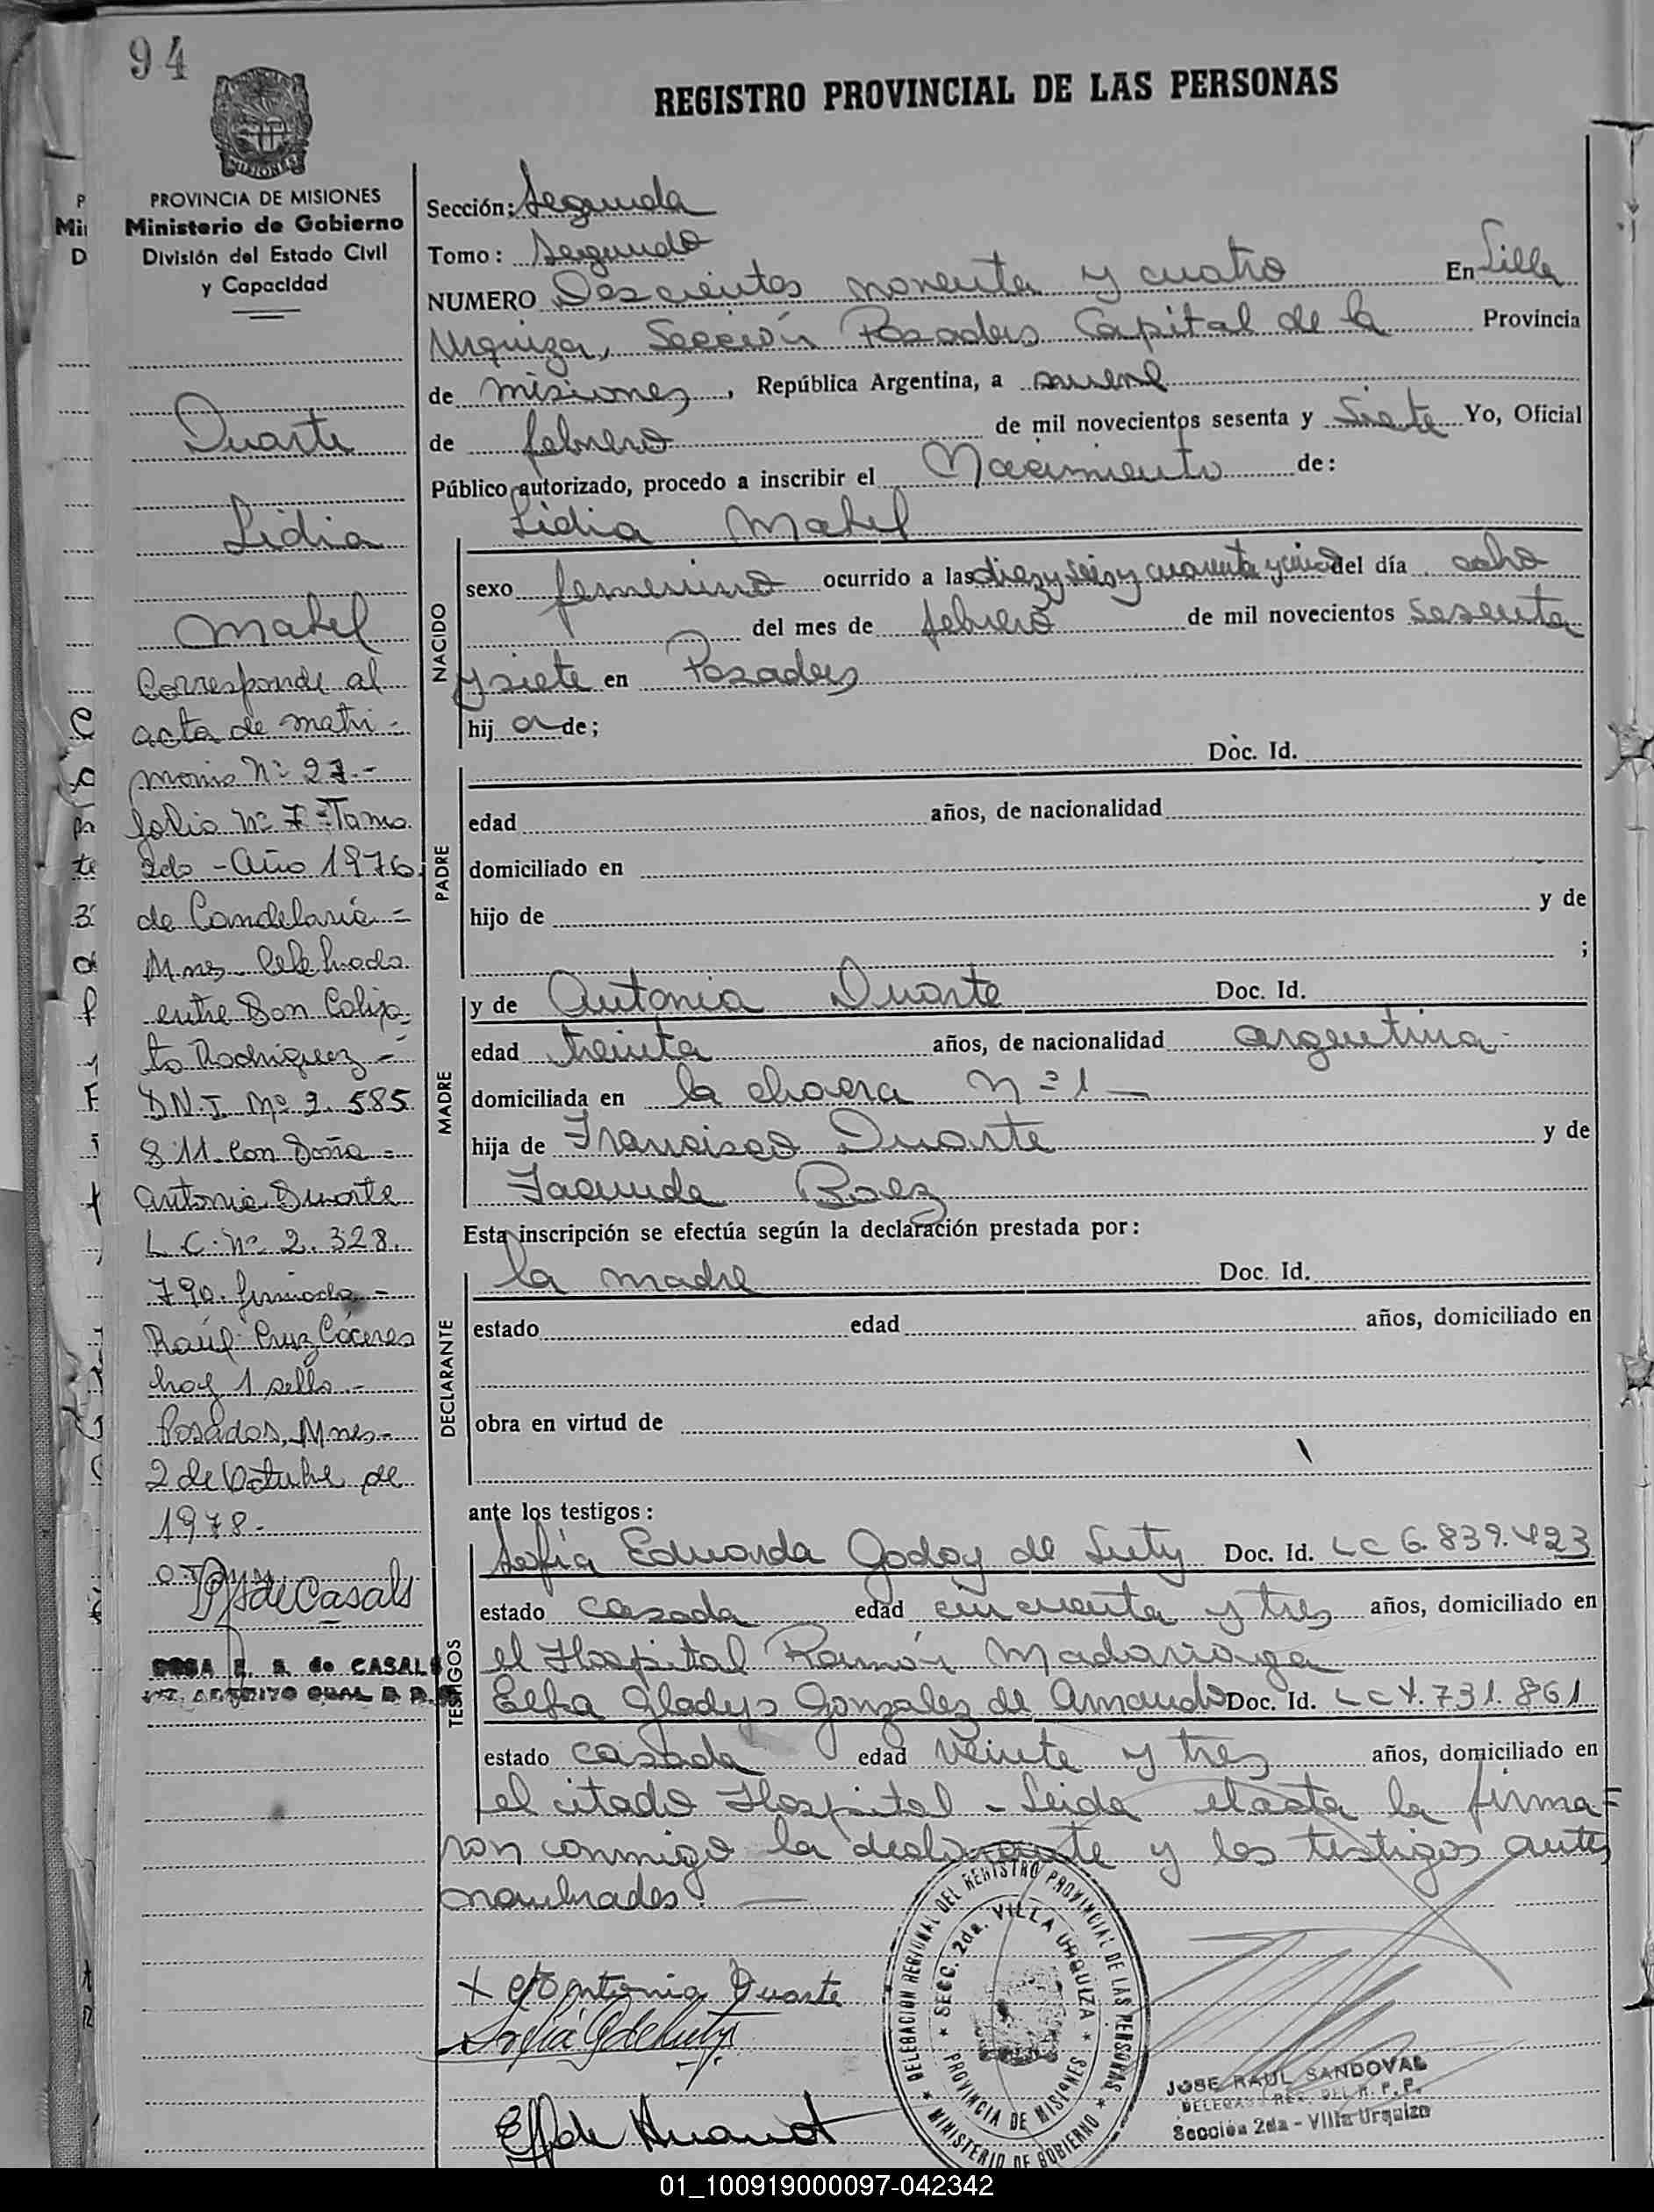 94
REGISTRO PROVINCIAL DE LAS PERSONAS
MISIONES
PROVINCIA DE MISIONES
Ministerio de Gobierno
División del Estado Civil
y Capacidad
Duarte
Lidia
Mabel
Corresponde al
acta de matri-
monio Nº 27.-
folio Nº 7-Tomo
2do-Año 1976
de Candelaria=
Mnes. Celebrada
entre Don Calix-
to Rodriguez-
D.N.I. Nº 2.585.
811. con Doña=
Antonia Duarte
L.C. Nº 2.328.
790. firmada-
Raúl Cruz Cáceres
hay 1 sello.-
Posadas, Mnes-
2 de Octubre de
1978.-
de Casals
de CASALS
Sección: Segunda
Tomo: Segundo
NUMERO Doscientos noventa y cuatro En Villa
Urquiza, Sección Posadas Capital de la Provincia
de Misiones, República Argentina, a nueve
de febrero de mil novecientos sesenta y Siete Yo, Oficial
Público autorizado, procedo a inscribir el Nacimiento de:
Lidia Mabel
NACIDO
sexo femenino ocurrido a las diez y seis y cuarenta y cinco del día ocho
del mes de febrero de mil novecientos sesenta
y siete en Posadas
hij a de;
PADRE
Doc. Id.
edad años, de nacionalidad
domiciliado en
hijo de y de
;
MADRE
y de Antonia Duarte Doc. Id.
edad treinta años, de nacionalidad argentina-
domiciliada en la chacra Nº 1-
hija de Francisco Duarte y de
Facunda Baez
Esta inscripción se efectúa según la declaración prestada por:
DECLARANTE
la madre Doc. Id.
estado edad años, domiciliado en
obra en virtud de
ante los testigos:
TESTIGOS
Sofia Eduarda Godoy de Doc. Id. LC 6.839.423
estado casada edad cincuenta y tres años, domiciliado en
el Hospital Ramón Madariaga
Elba Gladys Gonzalez de Doc. Id. LC 4.731.861
estado casada edad veinte y tres años, domiciliado en
el citado Hospital - Leida el acta la firma=
ron conmigo la declarante y los testigos antes
nombrados.
x Antonia Duarte
Sofia G de
DELEGACION REGIONAL DEL REGISTRO PROVINCIAL DE LAS PERSONAS
SECC. 2da. VILLA URQUIZA
PROVINCIA DE MISIONES
MINISTERIO DE GOBIERNO
JOSE RAUL SANDOVAL
Sección 2da - Villa Urquiza
01_100919000097-042342